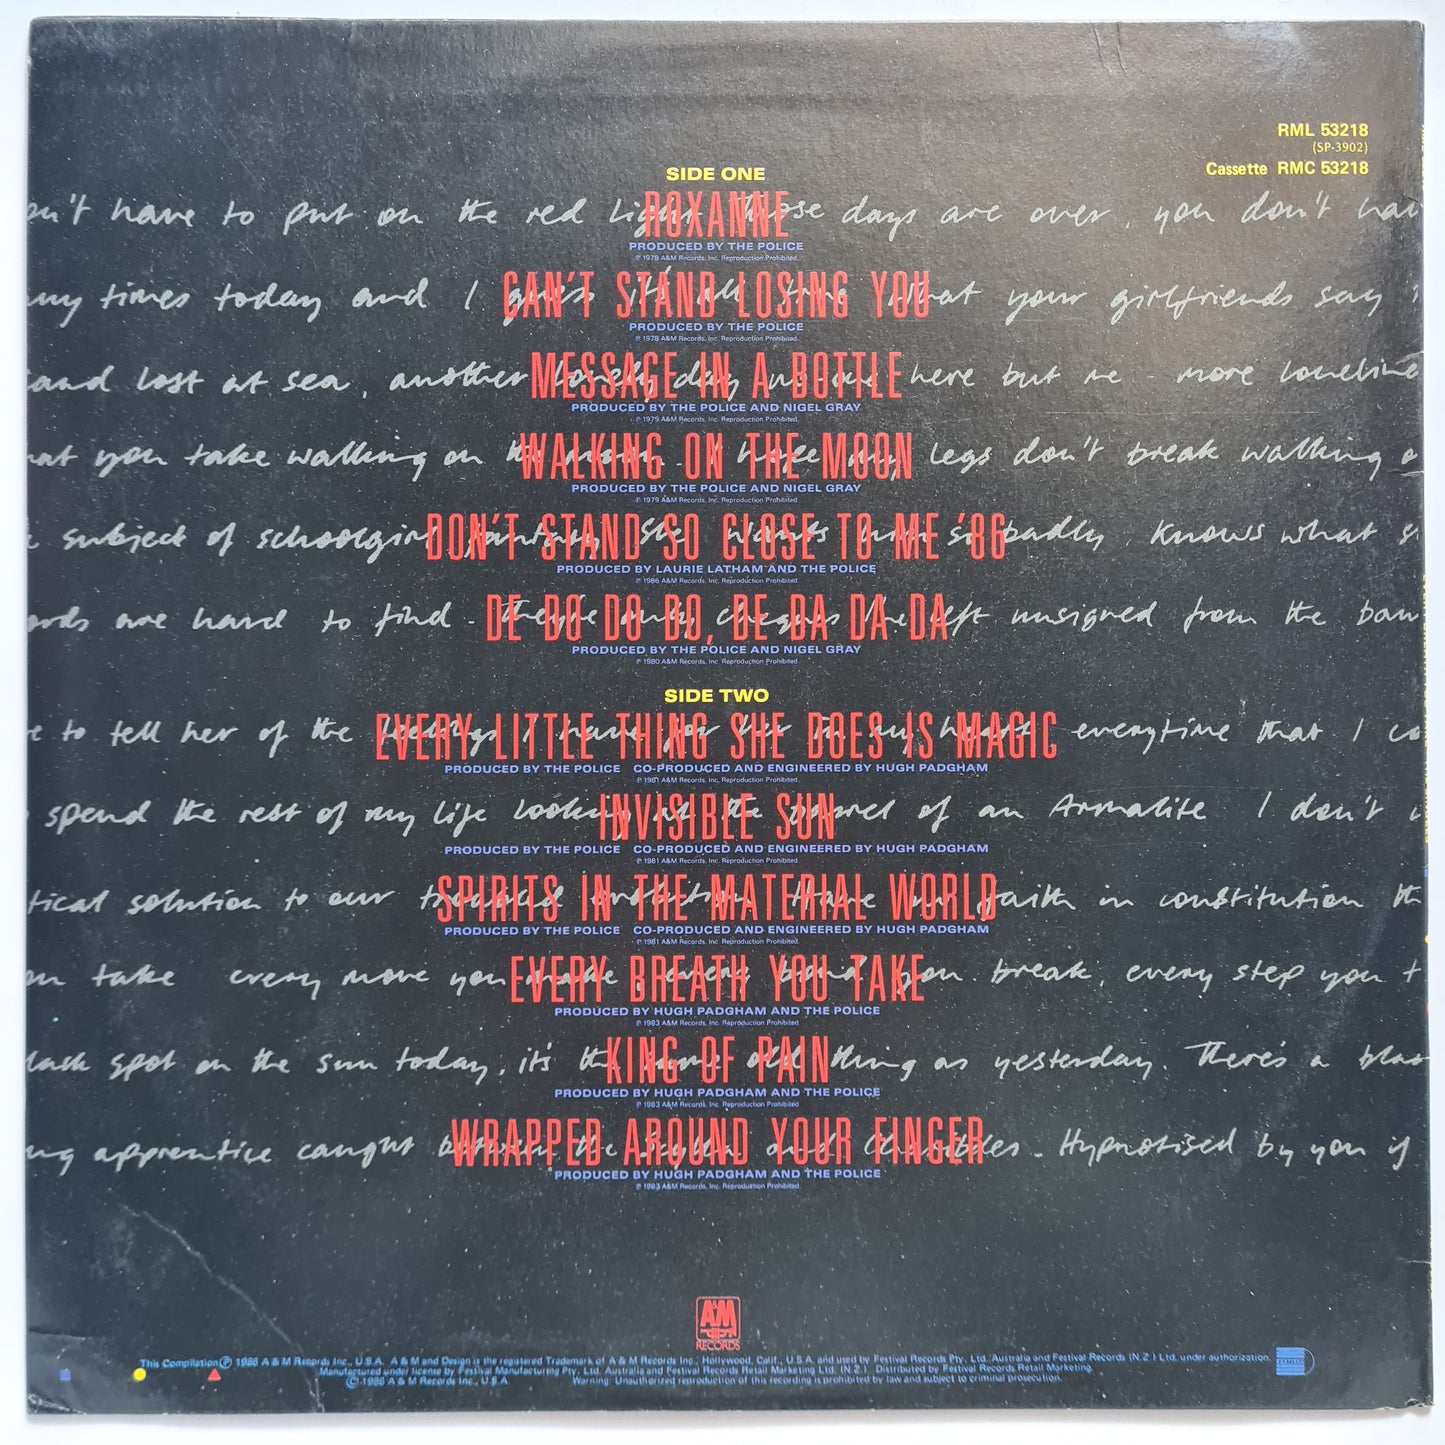 RML 53218
(SP-3902)
Cassette RMC 53218
SIDE ONE
on't have to put on the red light those days are over, you don't hav
ROXANNE
PRODUCED BY THE POLICE
℗ 1978 A&M Records, Inc. Reproduction Prohibited.
my times today and I guess it's all true what your girlfriends say
CAN'T STAND LOSING YOU
PRODUCED BY THE POLICE
℗ 1978 A&M Records, Inc. Reproduction Prohibited.
and lost at sea, another lonely day no one here but me - more loneline
MESSAGE IN A BOTTLE
PRODUCED BY THE POLICE AND NIGEL GRAY
℗ 1979 A&M Records, Inc. Reproduction Prohibited.
hat you take walking on the moon. I hope my legs don't break walking o
WALKING ON THE MOON
PRODUCED BY THE POLICE AND NIGEL GRAY
℗ 1979 A&M Records, Inc. Reproduction Prohibited.
subject of schoolgirl fantasy she wants him so badly. Knows what s
DON'T STAND SO CLOSE TO ME '86
PRODUCED BY LAURIE LATHAM AND THE POLICE
℗ 1986 A&M Records, Inc. Reproduction Prohibited.
ords are hard to find - They're only cheques I've left unsigned from the ban
DE DO DO DO, DE DA DA DA
PRODUCED BY THE POLICE AND NIGEL GRAY
℗ 1980 A&M Records, Inc. Reproduction Prohibited.
SIDE TWO
e to tell her of the feelings I have for her in my heart everytime that I co
EVERY LITTLE THING SHE DOES IS MAGIC
PRODUCED BY THE POLICE CO-PRODUCED AND ENGINEERED BY HUGH PADGHAM
℗ 1981 A&M Records, Inc. Reproduction Prohibited.
spend the rest of my life looking at the barrel of an Armalite I don't
INVISIBLE SUN
PRODUCED BY THE POLICE CO-PRODUCED AND ENGINEERED BY HUGH PADGHAM
℗ 1981 A&M Records, Inc. Reproduction Prohibited.
tical solution to our troubled evolution Have no faith in constitution th
SPIRITS IN THE MATERIAL WORLD
PRODUCED BY THE POLICE CO-PRODUCED AND ENGINEERED BY HUGH PADGHAM
℗ 1981 A&M Records, Inc. Reproduction Prohibited.
ou take every move you make, every bond you break, every step you t
EVERY BREATH YOU TAKE
PRODUCED BY HUGH PADGHAM AND THE POLICE
℗ 1983 A&M Records, Inc. Reproduction Prohibited.
lack spot on the sun today, it's the same old thing as yesterday. There's a blac
KING OF PAIN
PRODUCED BY HUGH PADGHAM AND THE POLICE
℗ 1983 A&M Records, Inc. Reproduction Prohibited.
ng apprentice caught between the Scylla and Charibdes - Hypnotised by you if
WRAPPED AROUND YOUR FINGER
PRODUCED BY HUGH PADGHAM AND THE POLICE
℗ 1983 A&M Records, Inc. Reproduction Prohibited.
A&M
RECORDS
This Compilation ℗ 1986 A & M Records Inc., U.S.A. A & M and Design is the registered Trademark of A & M Records Inc., Hollywood, Calif., U.S.A. and used by Festival Records Pty. Ltd. Australia and Festival Records (N.Z.) Ltd. under authorization.
Manufactured under license by Festival Manufacturing Pty. Ltd. Australia and Festival Records Retail Marketing Ltd. (N.Z.). Distributed by Festival Records Retail Marketing.
© 1986 A & M Records Inc., U.S.A. Warning: Unauthorized reproduction of this recording is prohibited by law and subject to criminal prosecution.